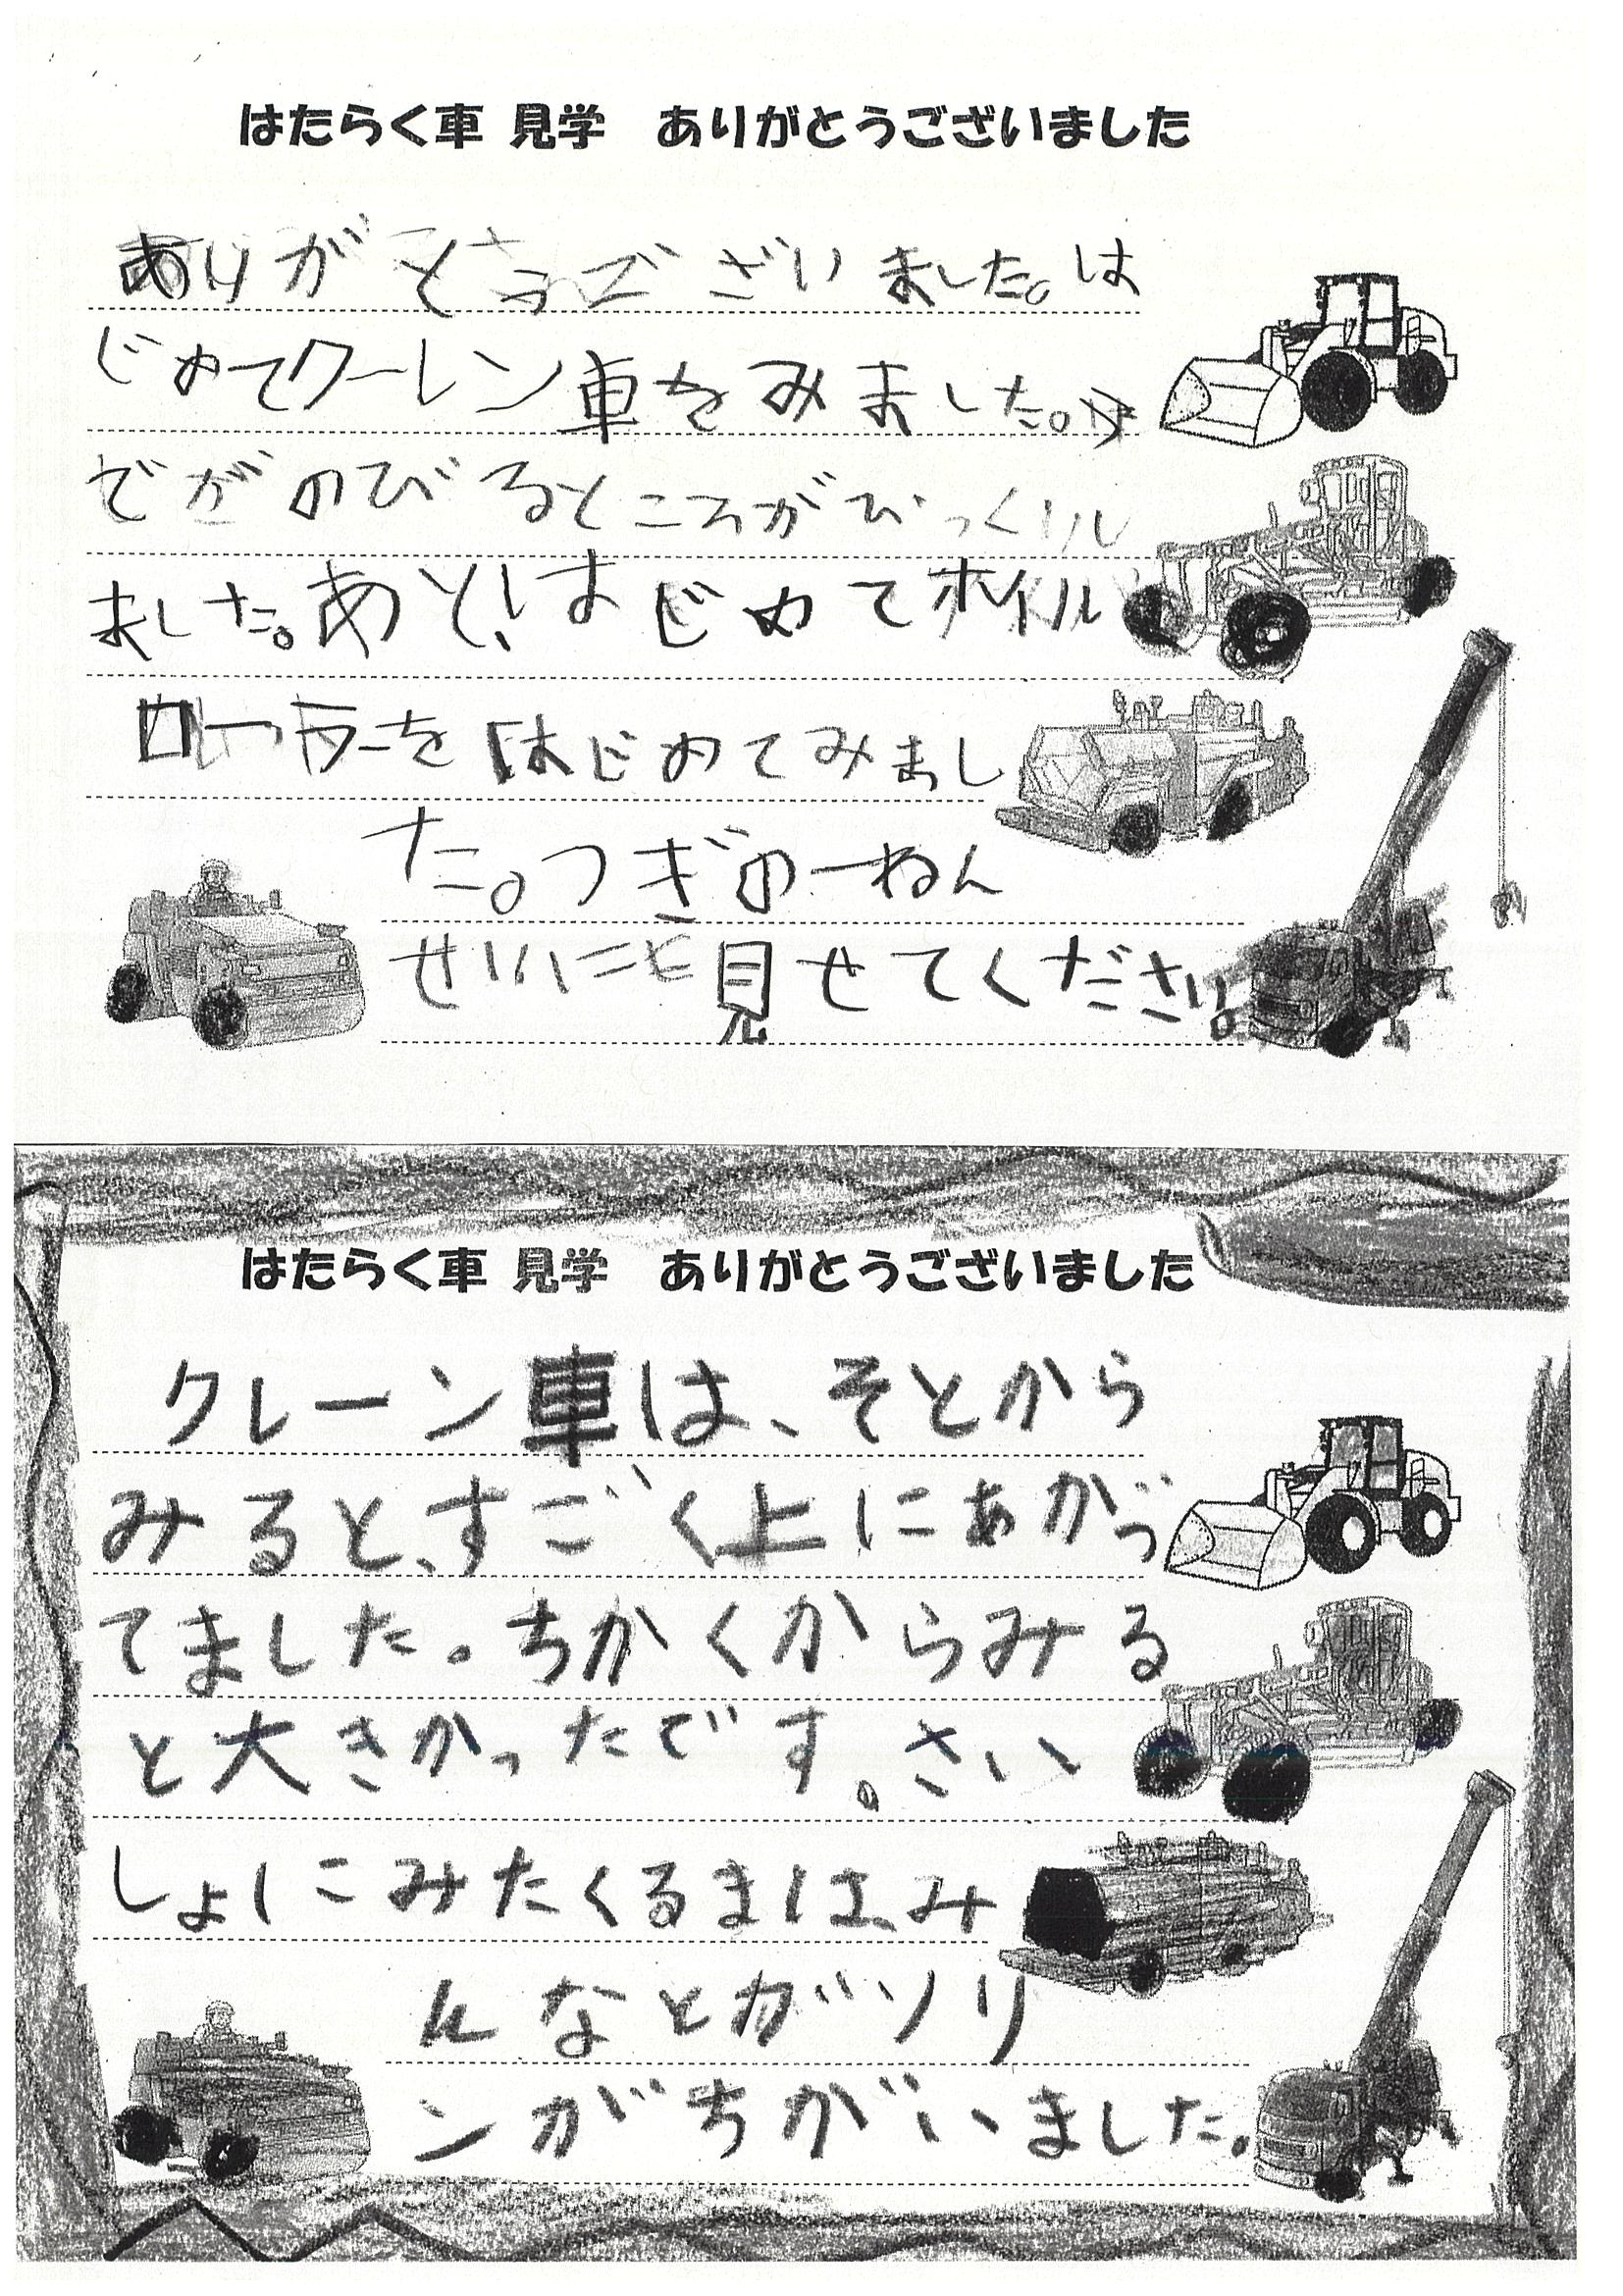 はたらく車 見学　ありがとうございました
ありがとうございました。は
じめてクーレン車をみました。う
でがのびるところがびっくりし
ました。あと!はじめてホイル
ローラーをはじめてみまし
た。つぎの一ねん
せいにも見せてください。
はたらく車 見学　ありがとうございました
クレーン車は、そとから
みると、すごく上にあがっ
てました。ちかくからみる
と大きかったです。さい
しょにみたくるまは、み
んなとガソリ
ンがちがいました。